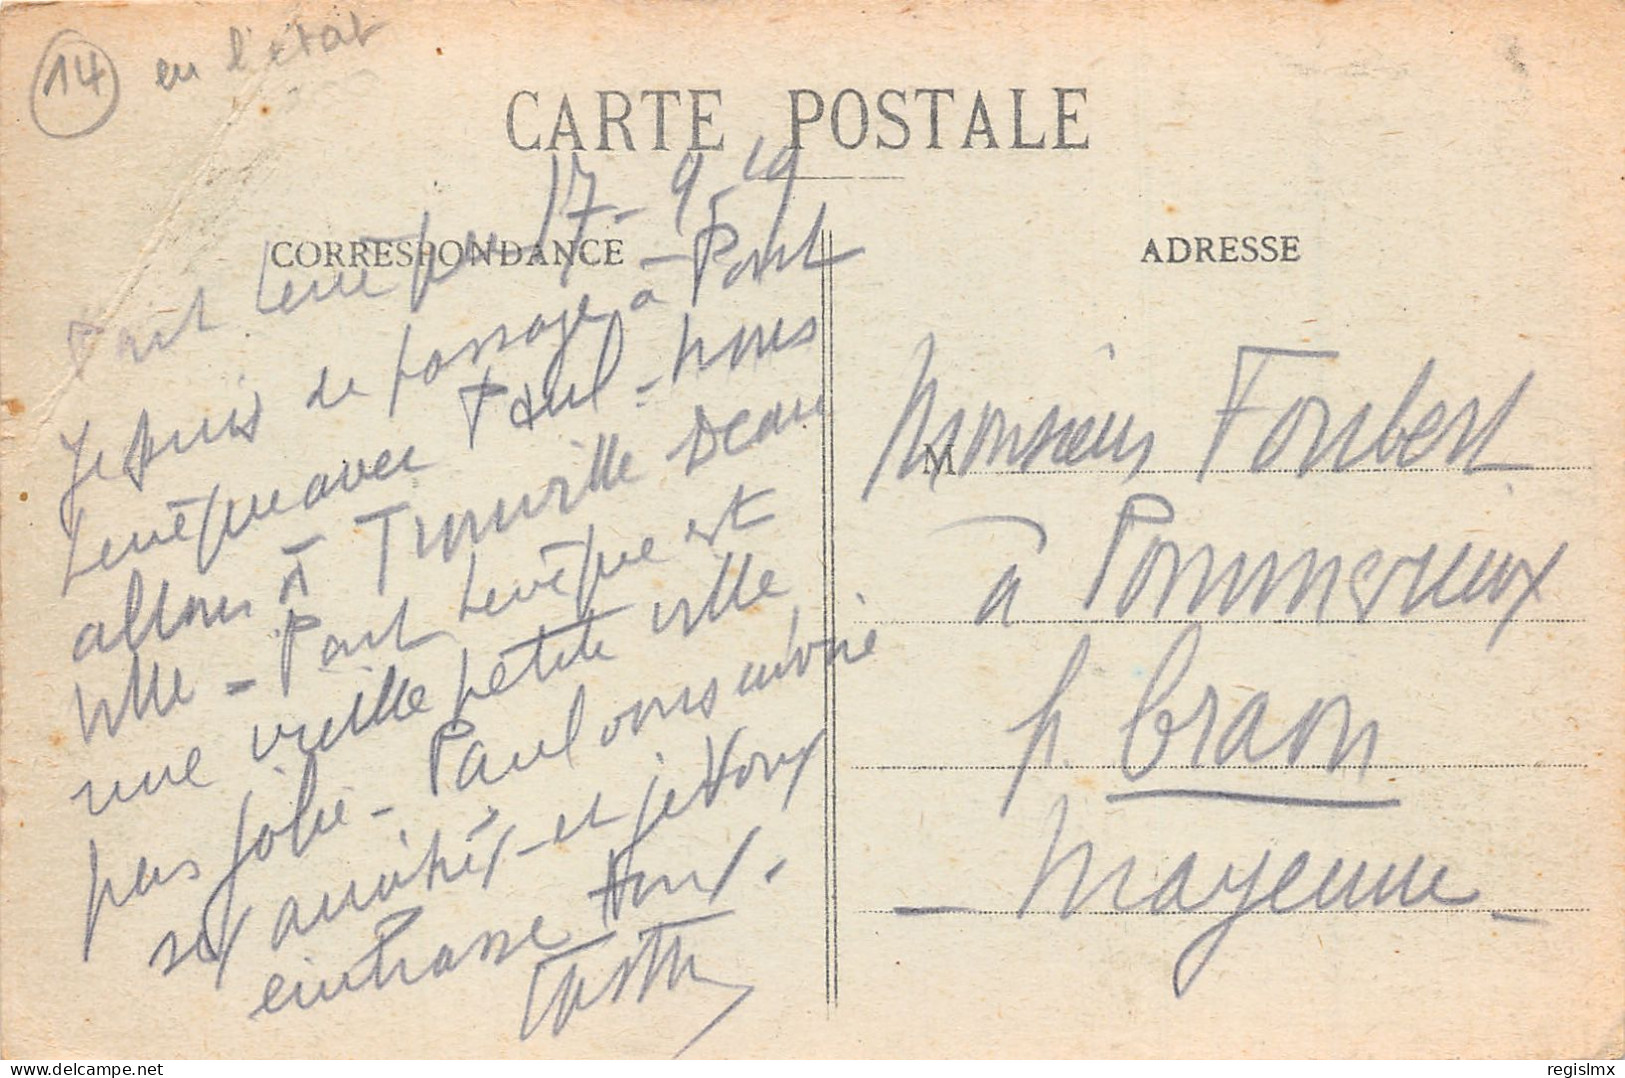 14 en l'état
CARTE POSTALE
CORRESPONDANCE
Pont Levêque 17-9-19
Je suis de passage à Pont
Levêque avec Paul - nous
allons à Trouville Deau
ville - Pont Levêque est
une vieille petite ville
pas jolie - Paul vous envoie
ses amitiés et je vous
embrasse tous.
ADRESSE
M
Monsieur Foubert
à Pommerieux
p. Craon
- Mayenne -
delcampe.net
regislmx